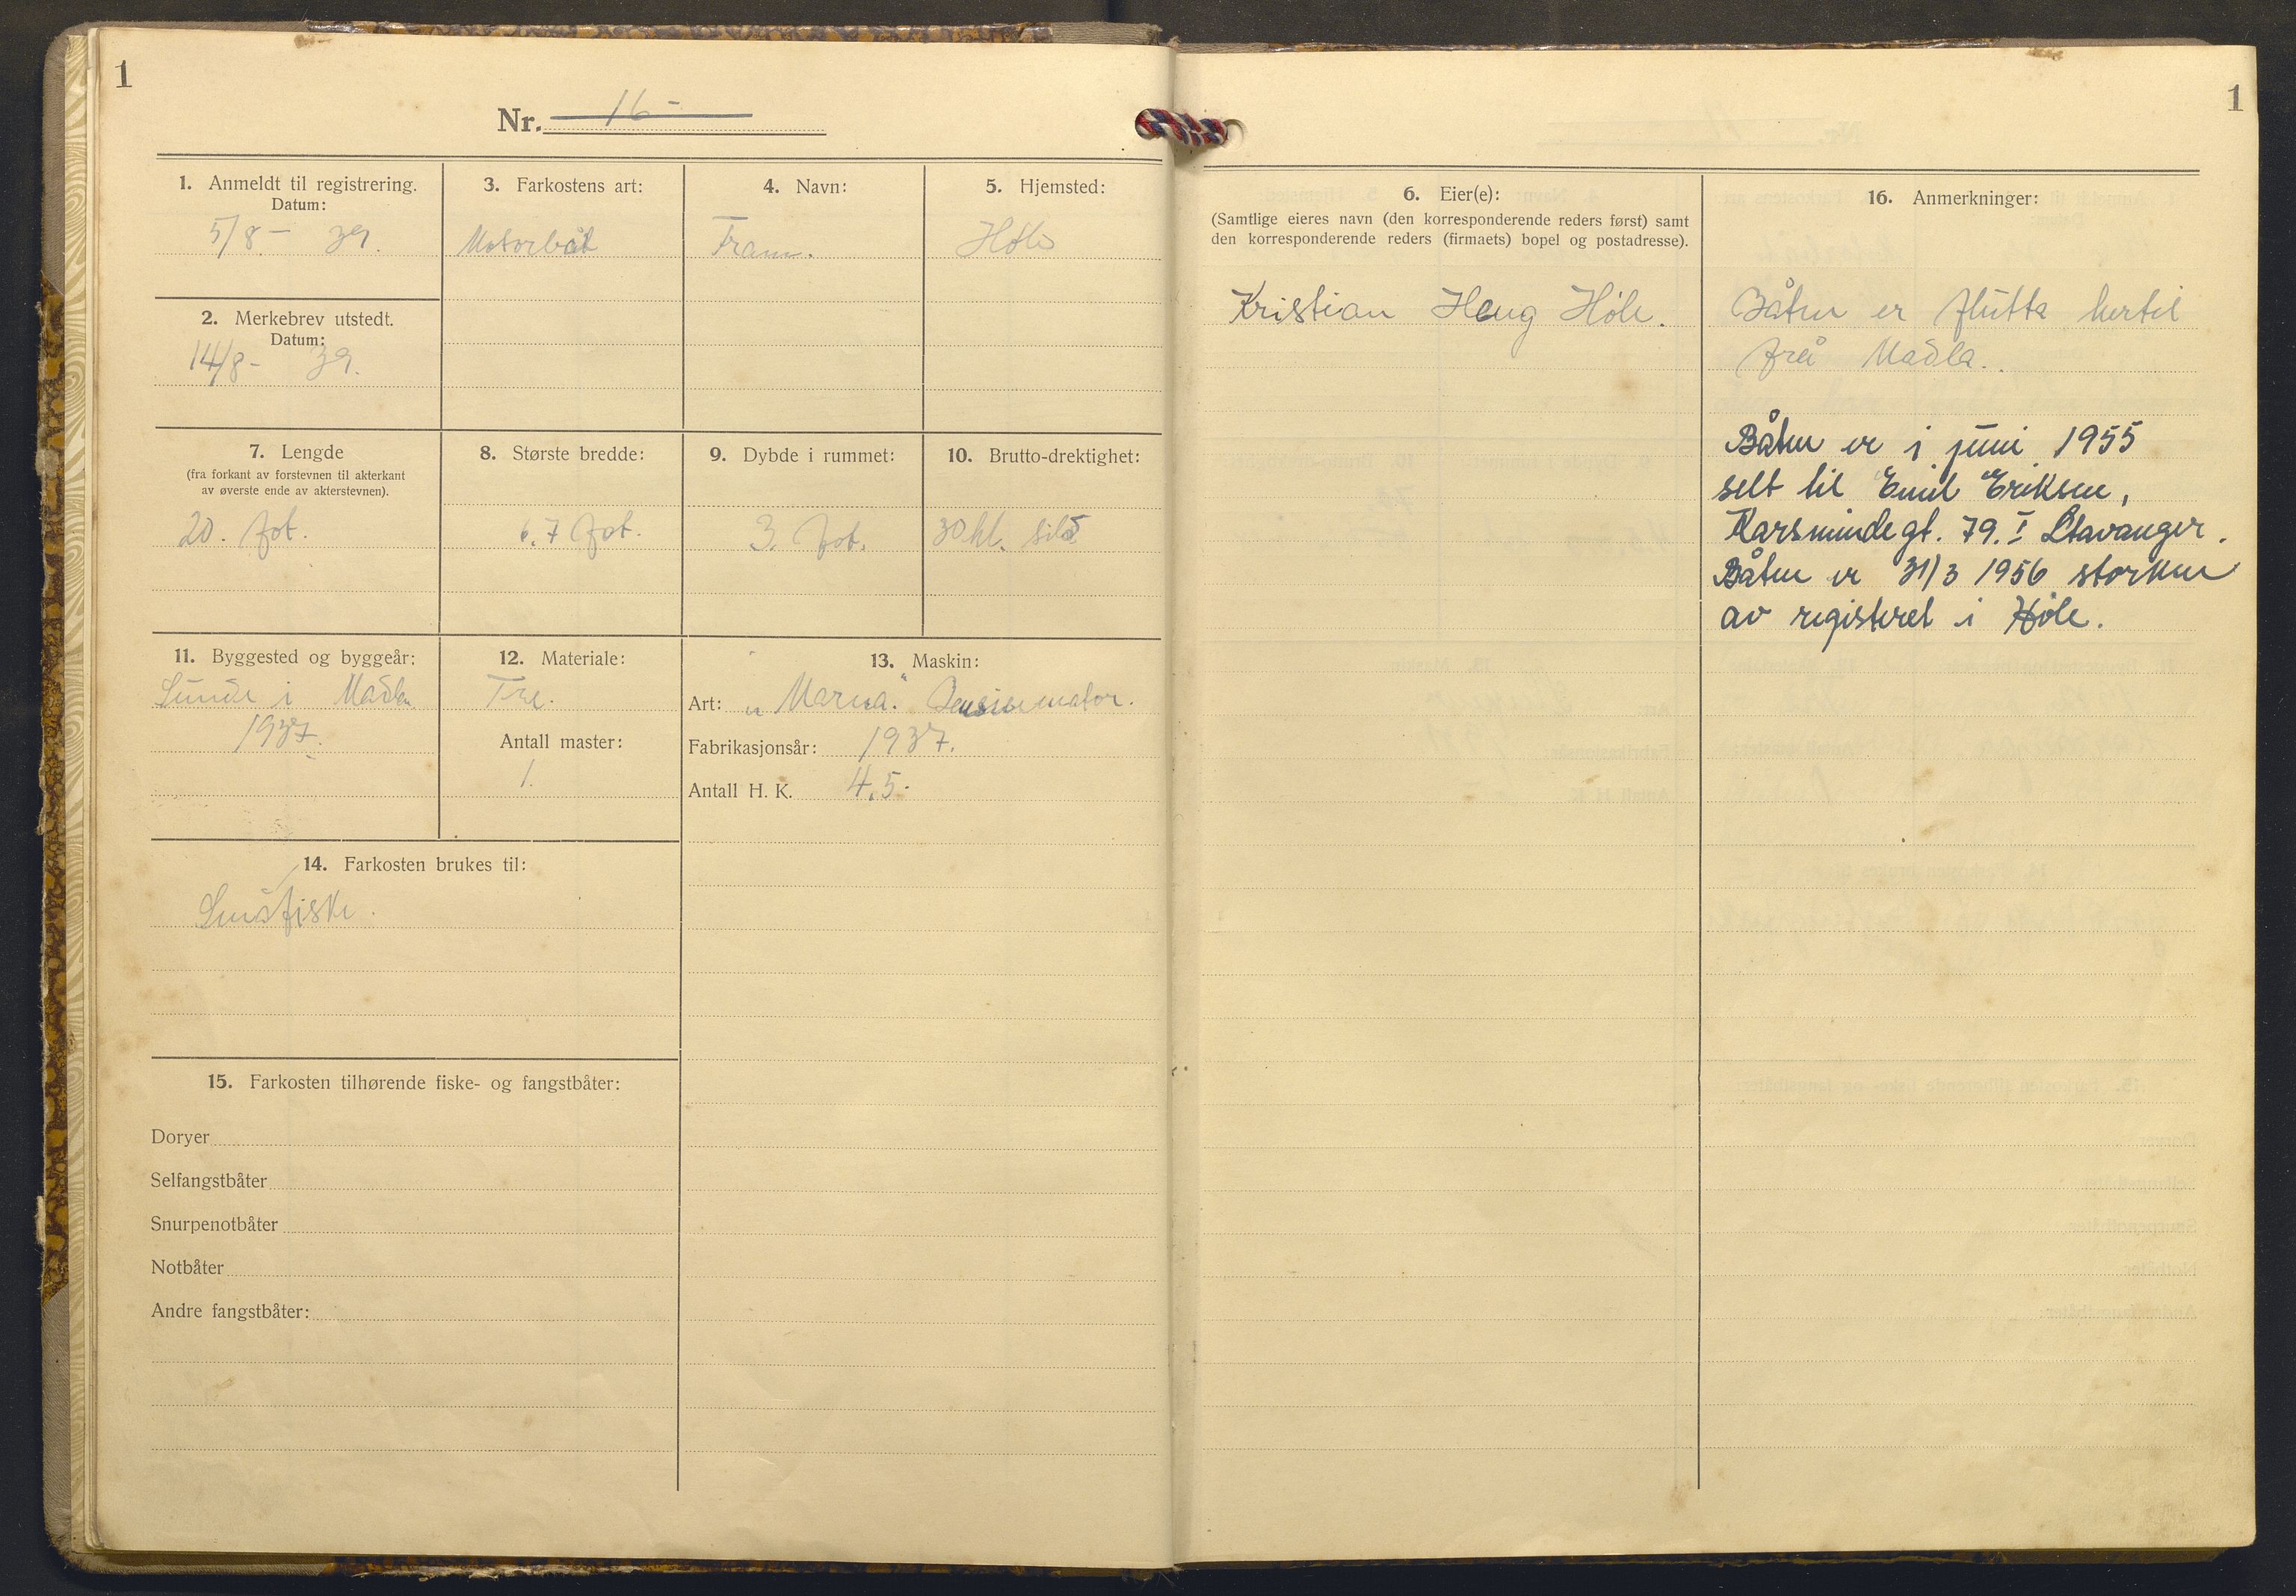 1
Nr. 16 -
1. Anmeldt til registrering.
Datum:
5/8 - 39.
2. Merkebrev utstedt.
Datum:
14/8 - 39.
3. Farkostens art:
Motorbåt
4. Navn:
Fram.
5. Hjemsted:
Høle
7. Lengde
(fra forkant av forstevnen til akterkant
av øverste ende av akterstevnen).
20. fot.
8. Største bredde:
6.7 fot.
9. Dybde i rummet:
3. fot.
10. Brutto-drektighet:
30 hl. sild
11. Byggested og byggeår:
Sunde i Madla
1937.
12. Materiale:
Tre.
Antall master:
1.
13. Maskin:
Art: „Marna" motor.
Fabrikasjonsår: 1937.
Antall H. K. 4.5.
14. Farkosten brukes til:
Småfiske.
15. Farkosten tilhørende fiske- og fangstbåter:
Doryer
Selfangstbåter
Snurpenotbåter
Notbåter
Andre fangstbåter:
1
6. Eier(e):
(Samtlige eieres navn (den korresponderende reders først) samt
den korresponderende reders (firmaets) bopel og postadresse).
Kristian Haug Høle.
16. Anmerkninger:
Båten er flutta hertil
frå Madla.
Båten er i juni 1955
selt til Emil Eriksen,
Karsmindegt. 79. I Stavanger.
Båten er 31/3 1956 storken
av registeret i Høle.